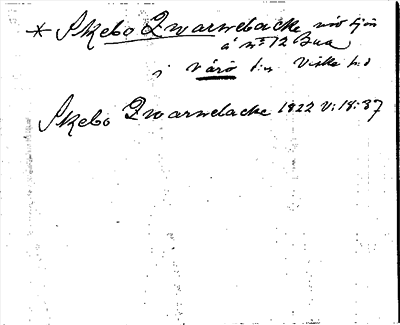 * Skebo Qwarnebacke vid sjön
å nr 12 Bua
i Värö s:n Viske h:d
Skebo Qwarnebacke 1822 V: 18: 37